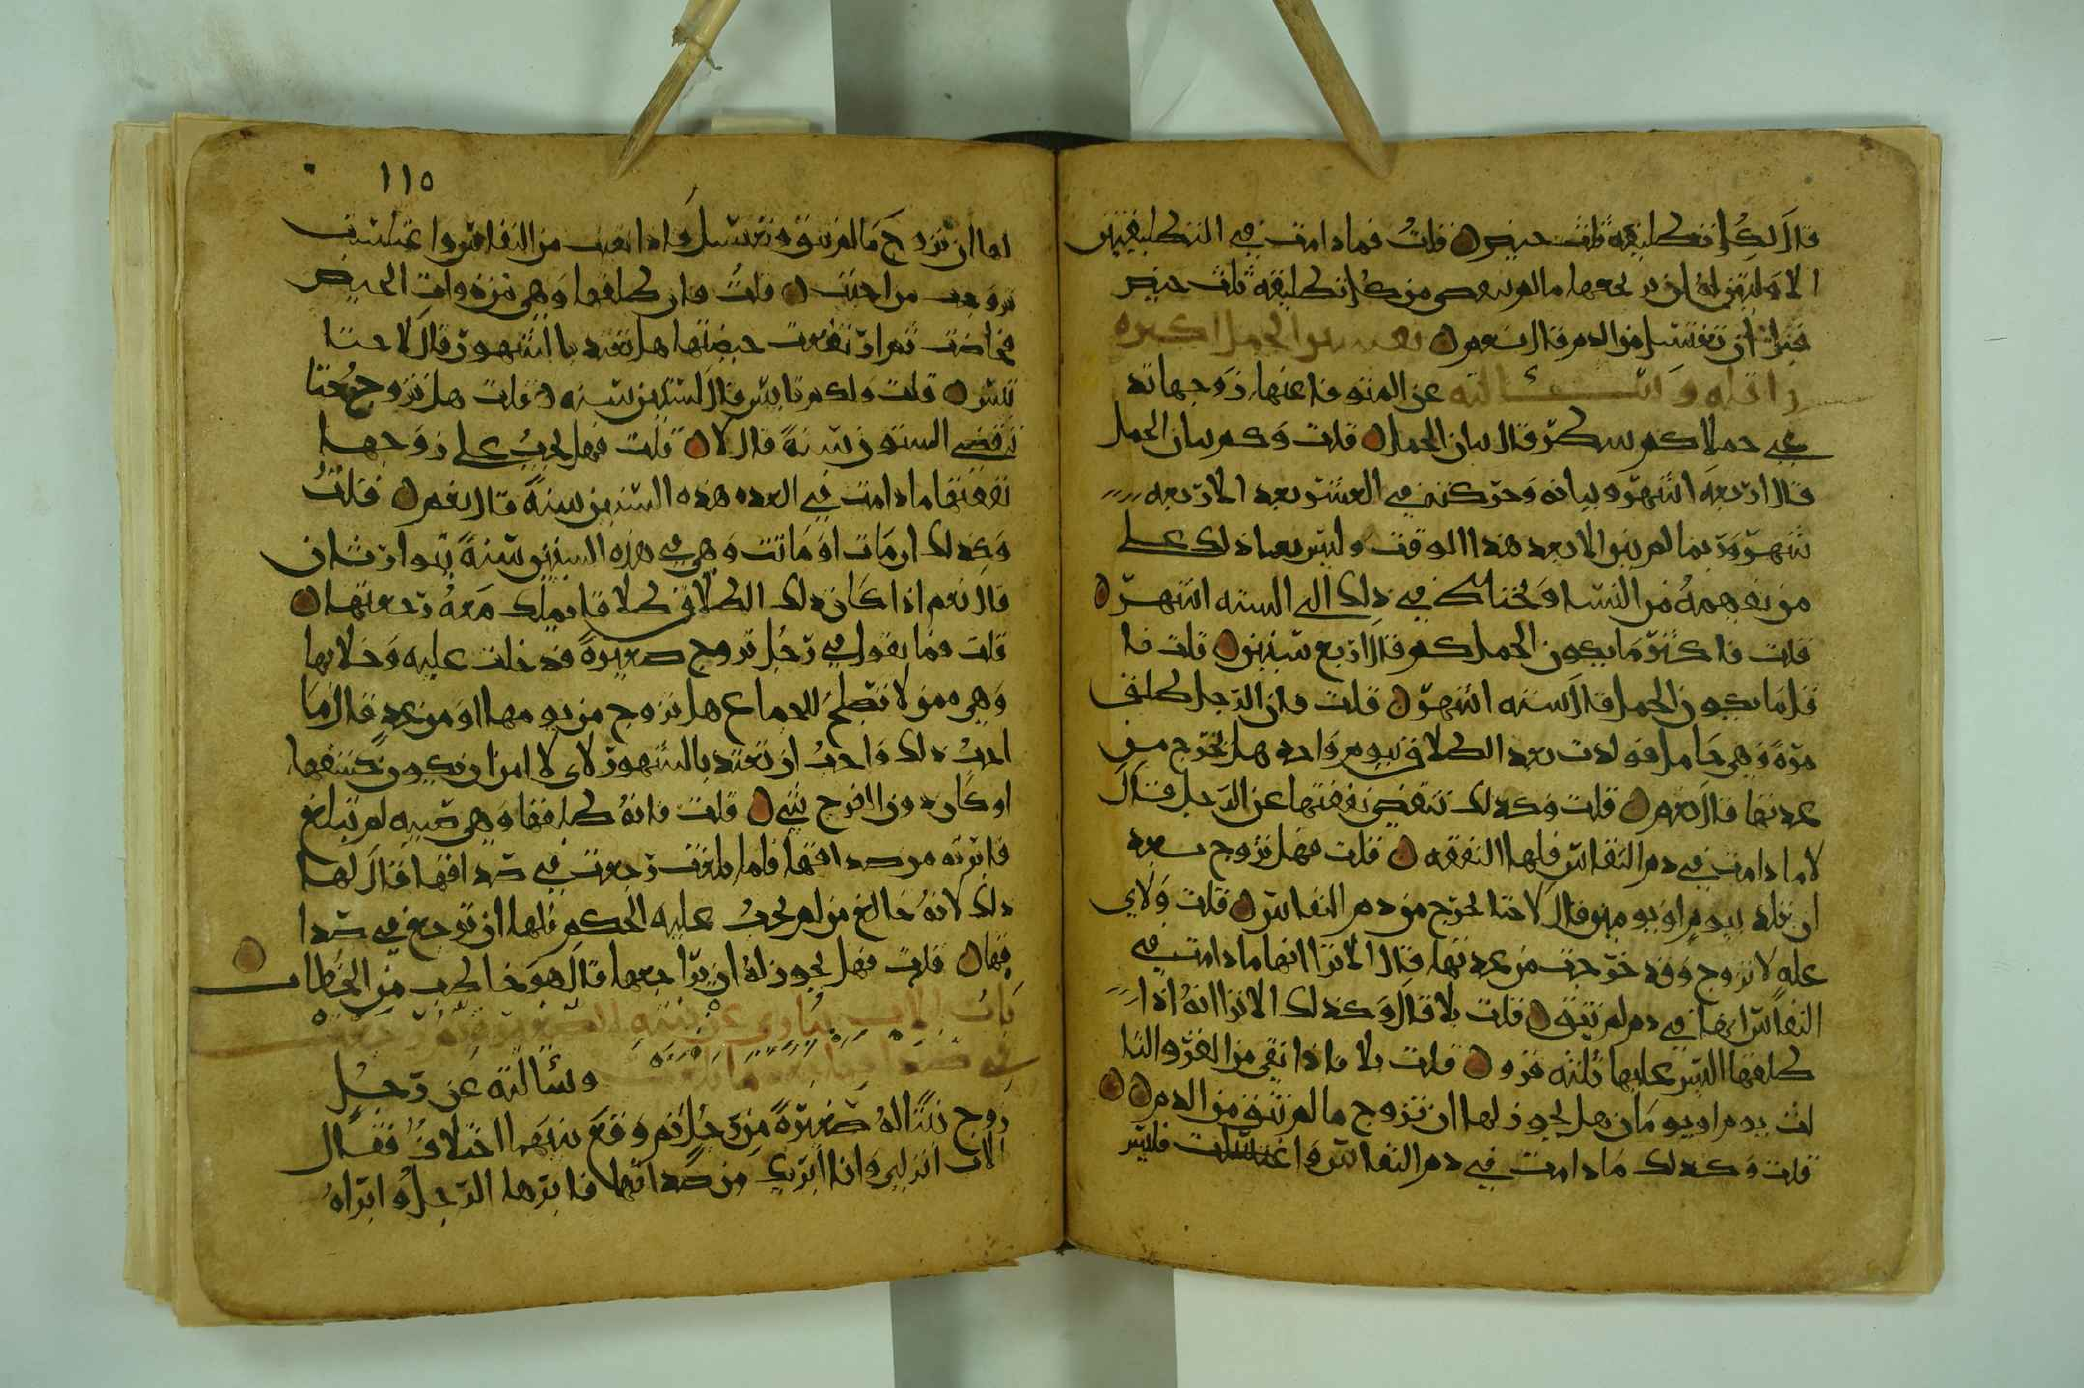 قال لكل تطليقة ثلث حيض قلت فما دامت في التطليقتين
الاولتين له ان يرتجعها ما لم تنقضي من كل تطليقة ثلث حيض
قبل ان تغتسل من الدم قال نعم تفسير الحمل اكثره
واقله وسألته عن المتوفا عنها زوجها تد
عي حملا كم تنتظر قال بيان الحمل قلت وكم بيان الحمل
قال اربعه اشهر وبيانه وحركته في العشر بعد الاربعه
شهر وربما لم يبن الا بعد هذا الوقت وليس يعما ذلك على
من يفهمه من النساء ويحتاط في ذلك الى الستة اشهر
قلت فاكثر ما يكون الحمل كم قال اربع سنين قلت فا
قل ما يكون الحمل قال سته اشهر قلت فان الرجل طلق
مره وهي حامل فولدت بعد الطلاق بيوم واحد هل تخرج من
عدتها قال نعم قلت وكذلك تنقضي نفقتها عن الرجل قال
لا ما دامت في دم النفاس فلها النفقه قلت فهل تزوج بعد
ان تلد بيوم او يومين قال لا حتا تخرج من دم النفاس قلت ولاي
عله لا تزوج وقد خرجت من عدتها قال الا ترا انها ما دامت في
النفاس انها في دم لم تنق قلت بلا قال وكذلك الا ترا انه اذا
طلقها اليس عليها ثلثه قرو قلت بلا فاذا بقي من القرو الثا
لث يوم او يومان هل يجوز لها ان تزوج ما لم تنق من الدم
قلت وكذلك ما دامت في دم النفاس واغتسلت فليس
١١٥
لها ان تزوج ما لم تنق وتغتسل واذا نقت من النفاس واغتسلت
تزوجت من احبت قلت فان طلقها وهي تره وقت الحيض
فحاضت ثم ارتفعت حيضتها هل تعتد بالشهور قال لا حتا
تيئس قلت ولكم تايس قال لستين سنه قلت هل تزوج حتا
تنقضي الستون سنة قال لا قلت فهل يجب على زوجها
نفقتها ما دامت في العده هذه الستين سنة قال نعم قلت
وكذلك ان مات او ماتت وهي في هذه الستين سنة يتوارثان
قال نعم اذا كان ذلك الطلاق طلاقا يملك معه رجعتها
قلت فما تقول في رجل تزوج صغيرة فدخلت عليه وخلا بها
وهي ممن لا تصلح للجماع هل تزوج من يومها او من غد قال ما
احب ذلك واحب ان تعتد بالشهور لاي لا امن ان يكون كشفها
او كان دون الفرج شي قلت فانه طلقها وهي صبيه لم تبلغ
فابرته من صداقها فلما بلغت رجعت في صداقها قال لها
ذلك لانه خالع من لم يجب عليه الحكم فلها ان ترجع في صدا
قها قلت فهل يجوز له ان يراجعها قال هو خاطب من الخطاب
باب الاب يباري عن بنته الصغيرة
في صداقها بعد ما بلغت وسألته عن رجل
زوج بنتا له صغيرة من رجل ثم وقع بينهما اختلاف فقال
الاب انزلي وانا ابريك من صداقها فابرها الرجل وابراه